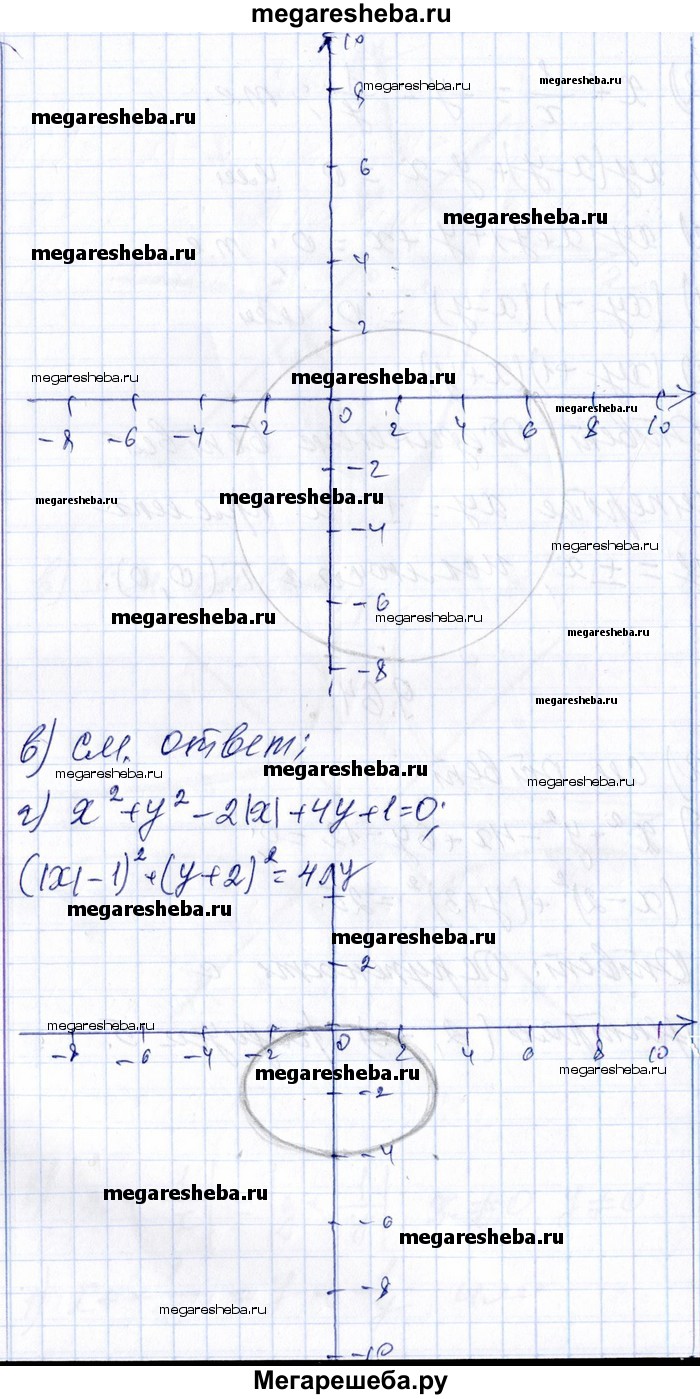 megaresheba.ru
10
8 megaresheba.ru megaresheba.ru
megaresheba.ru
6
megaresheba.ru
megaresheba.ru
4
2
megaresheba.ru megaresheba.ru
megaresheba.ru
-8 -6 -4 -2 0 2 4 6 8 10
-2
megaresheba.ru megaresheba.ru
-4
megaresheba.ru
-6
megaresheba.ru megaresheba.ru
megaresheba.ru
-8
megaresheba.ru
в) см. ответ;
megaresheba.ru megaresheba.ru megaresheba.ru
г) x²+y²-2|x|+4y+1=0;
(|x|-1)²+(y+2)²=4 y
megaresheba.ru
megaresheba.ru
2
megaresheba.ru
-8 -6 -4 -2 0 2 4 6 8 10
megaresheba.ru megaresheba.ru
-2
-4
megaresheba.ru
-6
megaresheba.ru
-8
megaresheba.ru
-10
Мегарешеба.ру